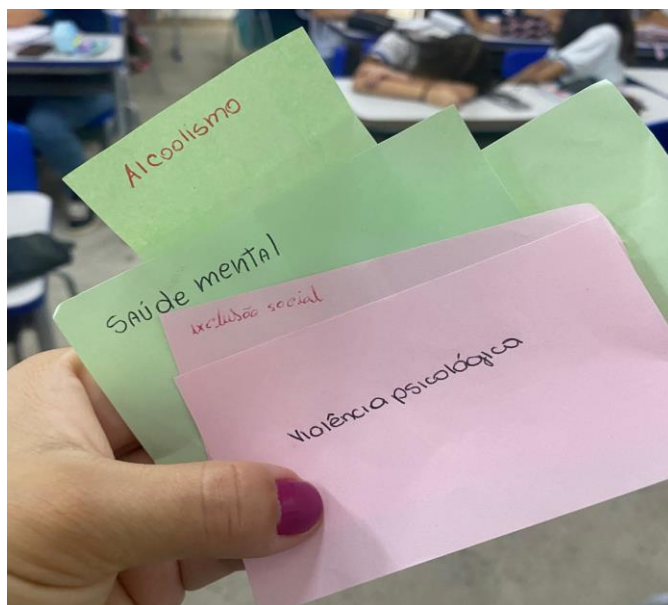 Alcoolismo
Saúde mental
inclusão social
Violência psicológica